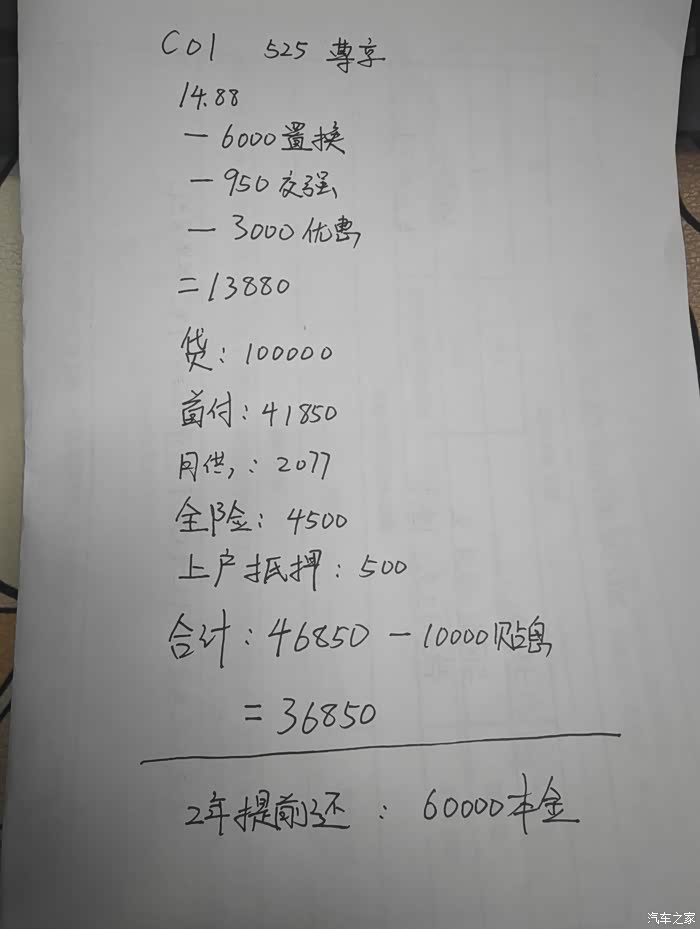 C01 525 尊享
14.88
- 6000置换
- 950交强
- 3000优惠
=13880
贷:100000
首付:41850
月供,:2077
全险:4500
上户抵押:500
合计:46850-10000贴息
=36850
2年提前还:60000本金
汽车之家